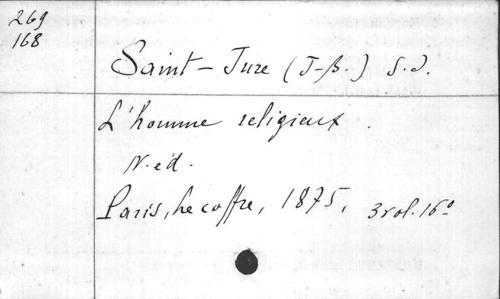 269
168
Saint-Jure (J-B.) S.J.
L'homme religieux.
N. éd.
Paris, Lecoffre, 1875, 3 vol. 16°